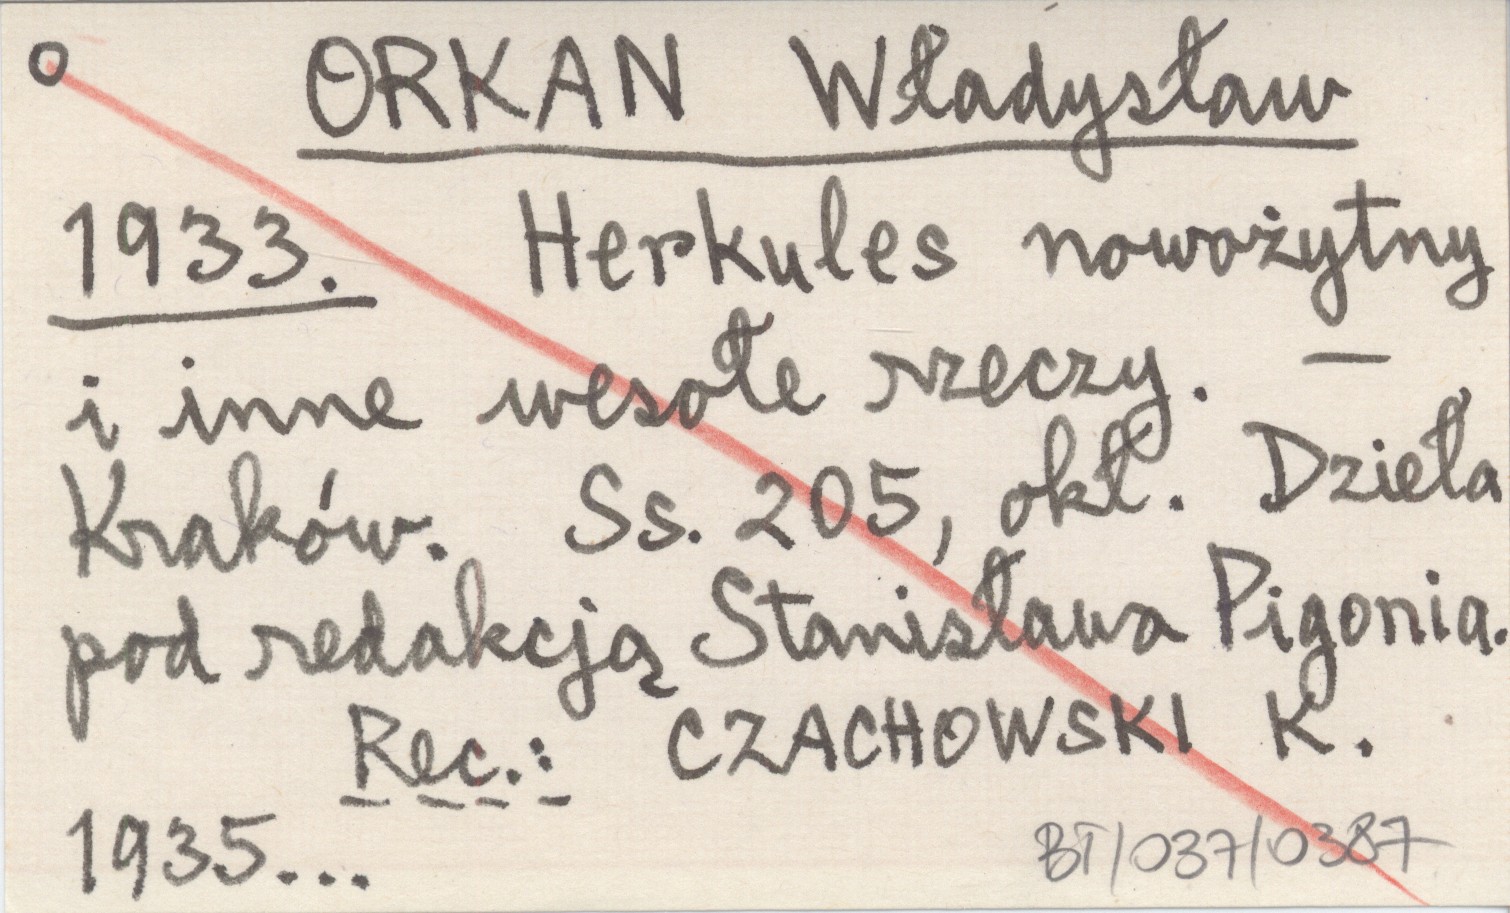 o ORKAN Władysław
1933. Herkules nowożytny
i inne wesołe rzeczy. —
Kraków. Ss. 205, okł. Dzieła
pod redakcją Stanisława Pigonia.
Rec.: CZACHOWSKI K.
1935...
BT/037/0387